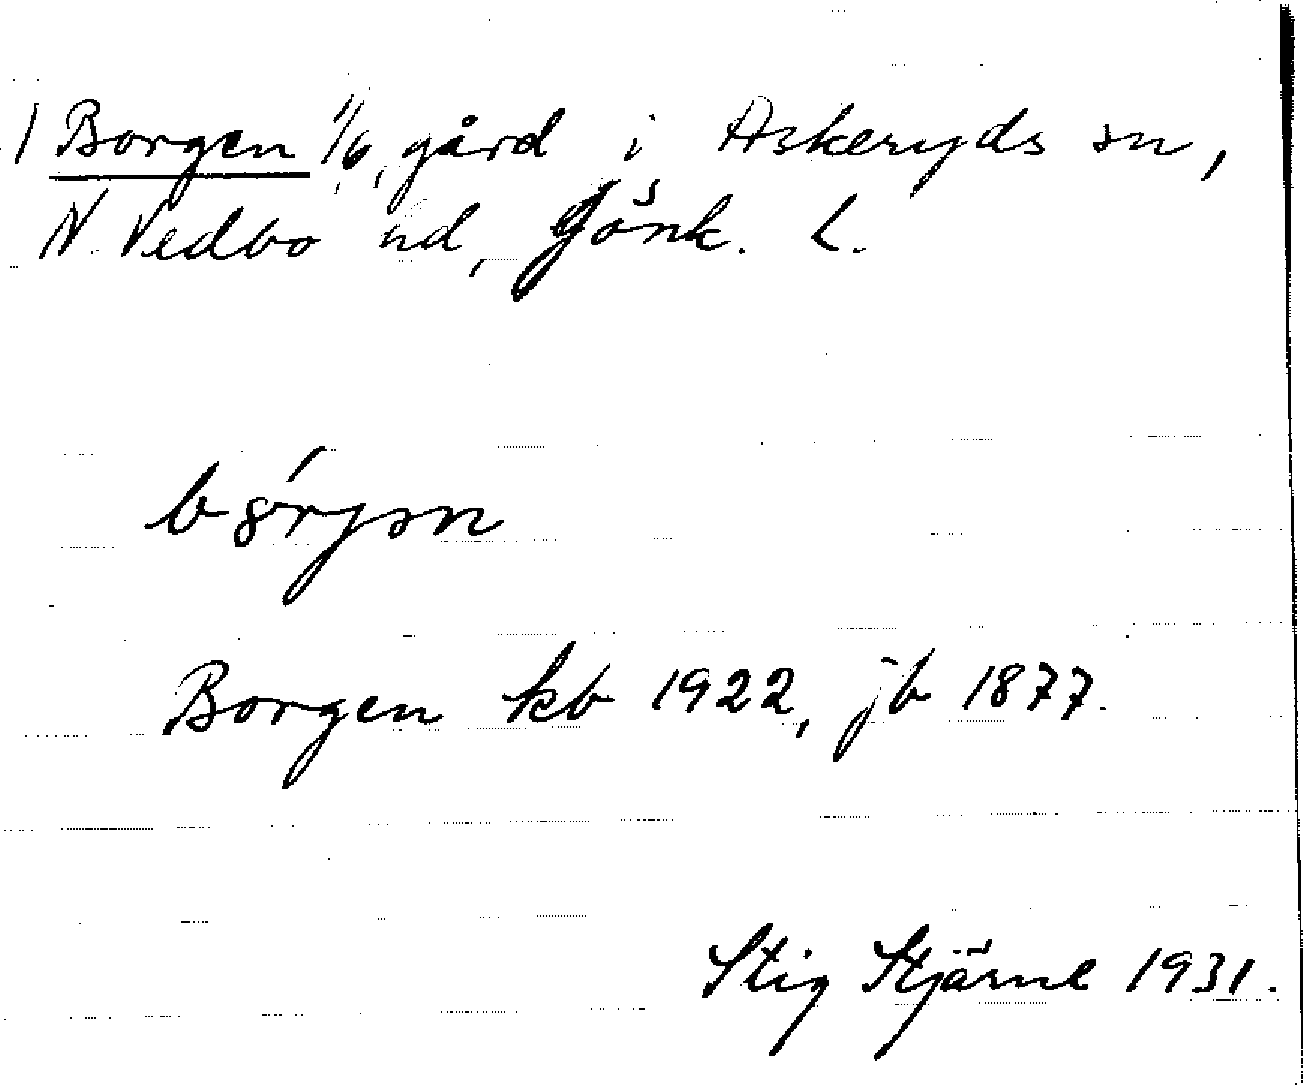 1 Borgen 1/6, gård i Askeryds sn,
N. Vedbo hd, Jönk. L.
Borgen kb 1922, jb 1877.
Stig Stjärne 1931.